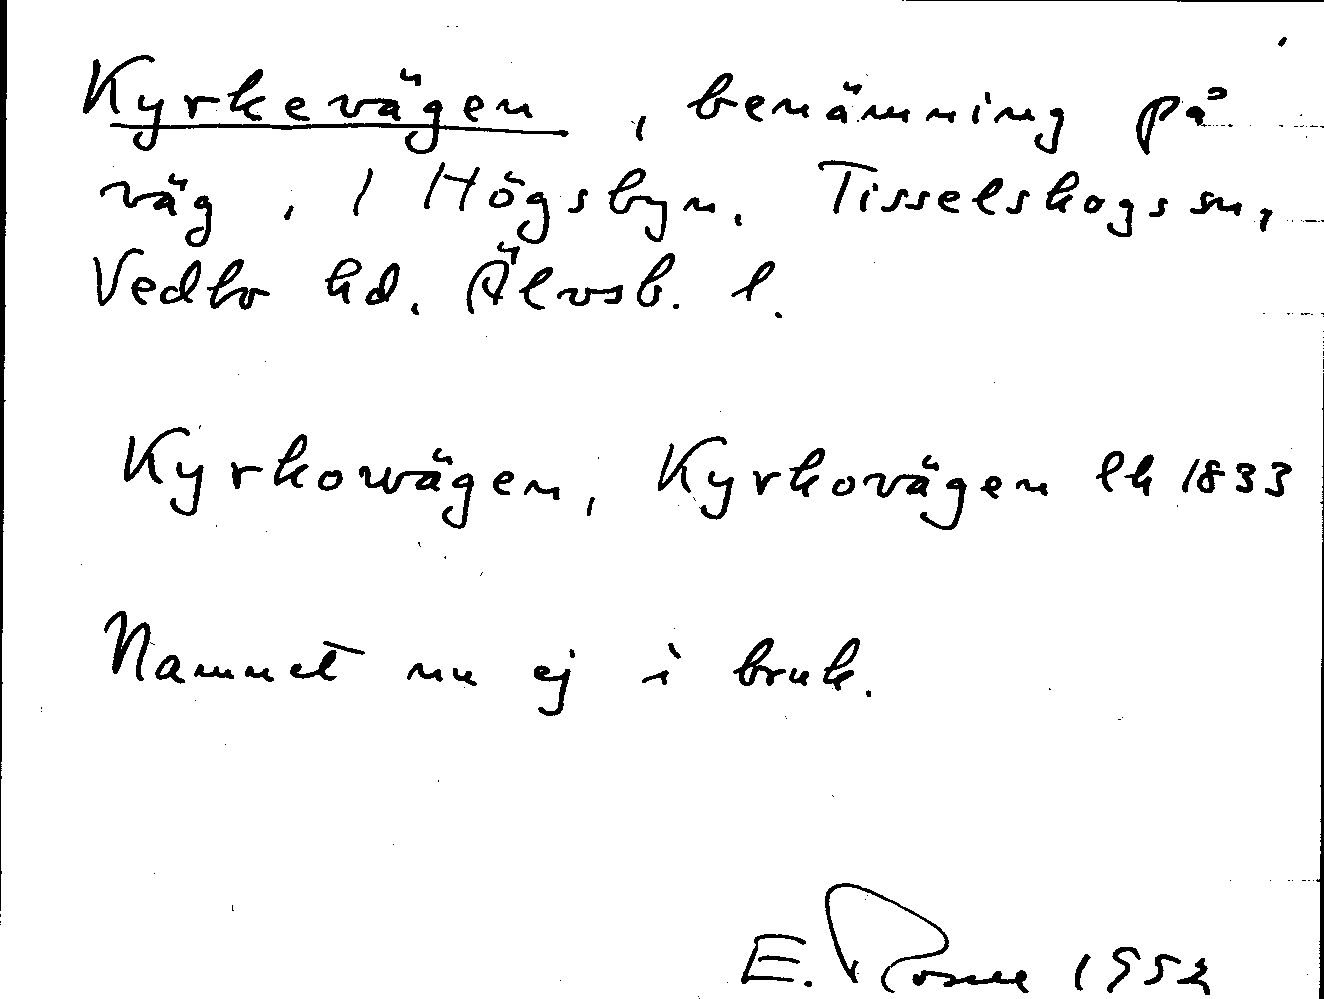 Kyrkevägen, benämning på
väg, 1 Högsbyn, Tisselskogs sn,
Vedbo hd. Älvsb. l.
Kyrkowägen, Kyrkovägen lh 1833
Namnet nu ej i bruk.
E. 1952